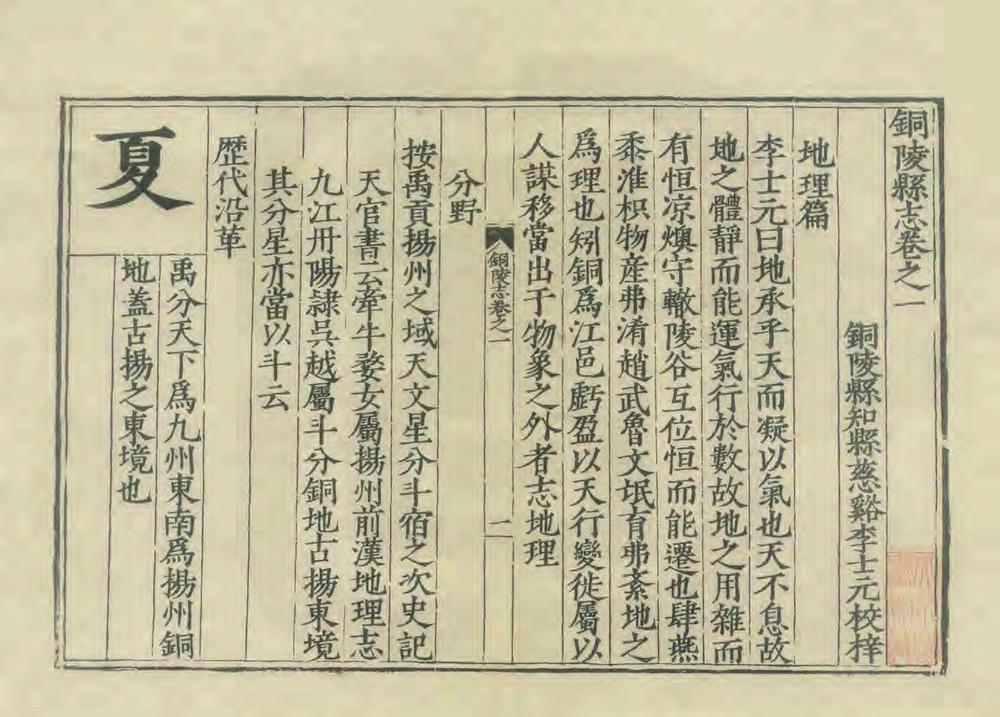 銅陵縣志卷之一
銅陵縣知縣慈谿李士元校梓
地理篇
李士元曰地承乎天而凝以氣也天不息故
地之體靜而能運氣行於數故地之用雜而
有恒凉燠守轍陵谷互位恒而能遷也肆燕
黍淮枳物産弗淆趙武魯文氓育弗紊地之
爲理也矧銅爲江邑虧盈以天行變徙屬以
人謀移當出于物象之外者志地理
銅陵志卷之一
二
分野
按禹貢揚州之域天文星分斗宿之次史記
天官書云牽牛婺女屬揚州前漢地理志
九江丹陽隷吳越屬斗分銅地古揚東境
其分星亦當以斗云
歷代沿革
夏
禹分天下爲九州東南爲揚州銅
地蓋古揚之東境也